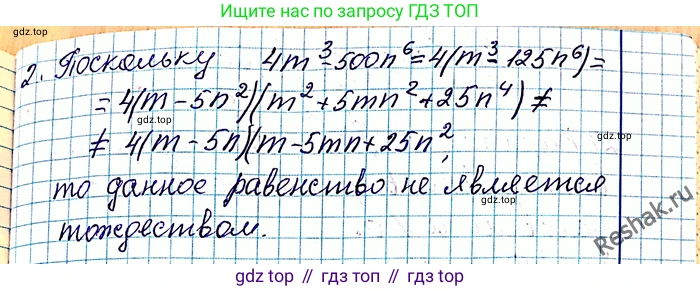 Ищите нас по запросу ГДЗ ТОП
gdz.top
2. Поскольку 4m³-500n⁶=4(m³-125n⁶)=
=4(m-5n²)(m²+5mn²+25n⁴)≠
gdz.top
≠ 4(m-5n)(m-5mn+25n²,
gdz.top
то данное равенство не является
тождеством.
gdz.top
Reshak.ru
gdz.top // гдз топ // gdz.top